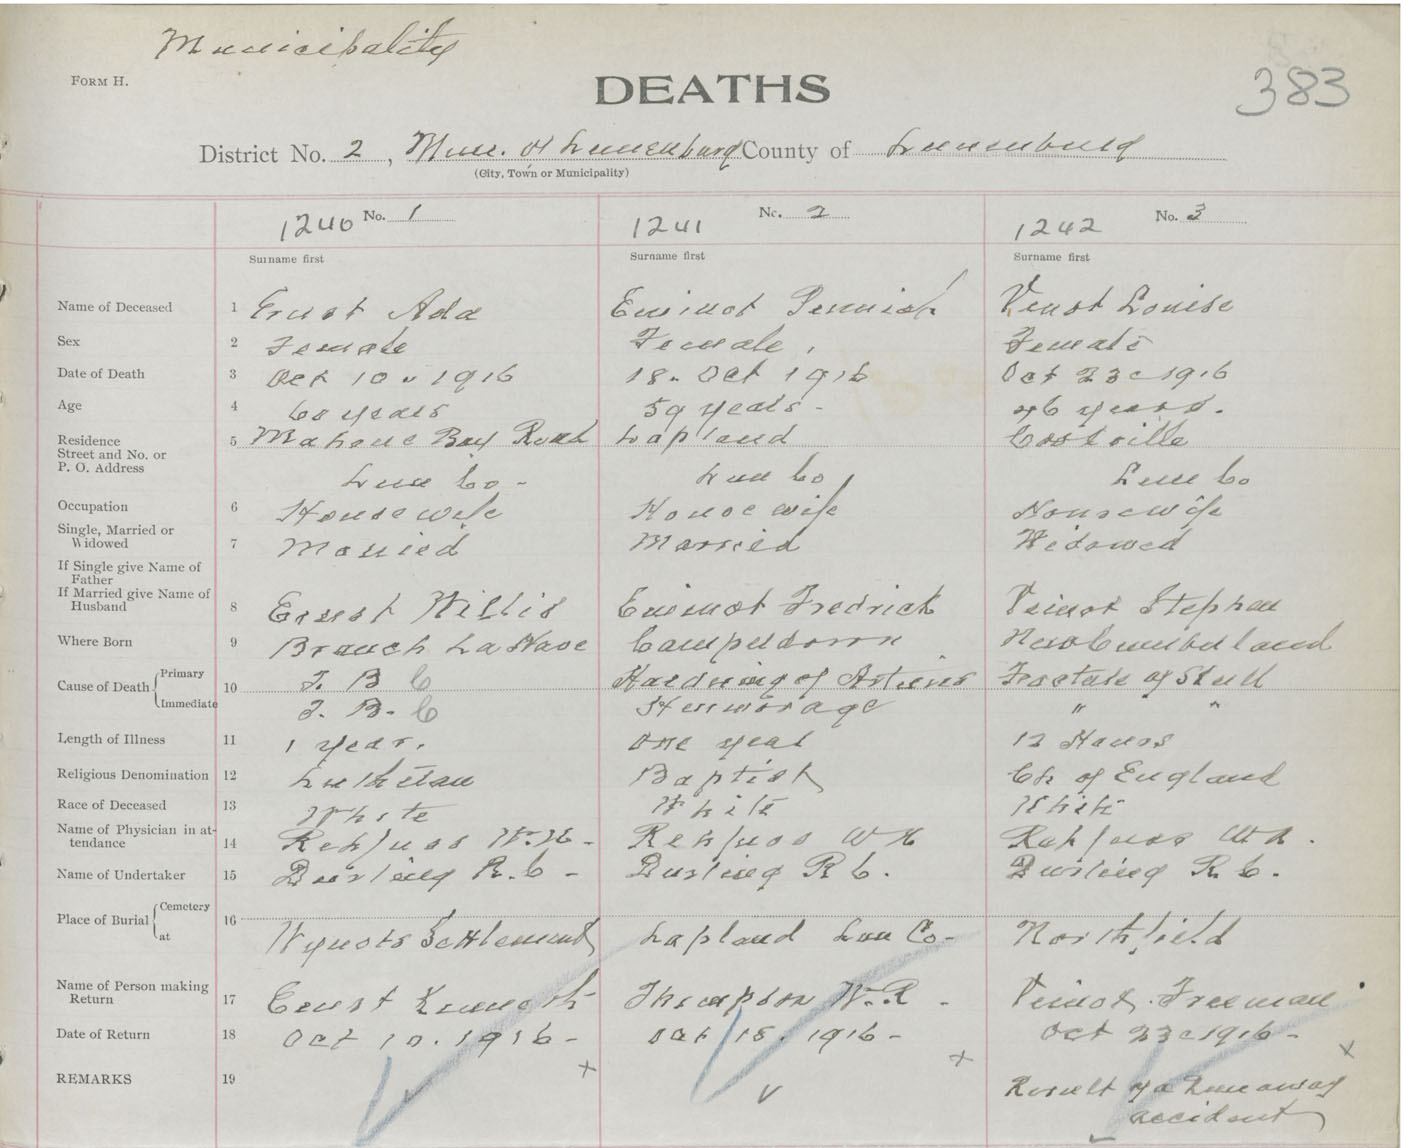 Municipality
FORM H.
DEATHS
383
District No. 2, Mun. of Lunenburg County of Lunenburg
(City, Town or Municipality)
1240 No. 1 1241 No. 2 1242 No. 3
Surname first Surname first Surname first
Name of Deceased 1 Ernst Ada Veinot Louise
Sex 2 Female Female, Female
Date of Death 3 Oct 10. 1916 18. Oct 1916 Oct 23 1916
Age 4 60 years 59 years - 46 years.
Residence 5 Mahone Bay Road Lapland
Street and No. or
P. O. Address
Lun Co - Lun Co Lun Co
Occupation 6 Housewife Housewife Housewife
Single, Married or
Widowed 7 Married Married Widowed
If Single give Name of
Father
If Married give Name of
Husband 8 Ernst Willis Fredrick Veinot Stephen
Where Born 9 Branch LaHave Camperdown New Cumberland
Cause of Death { Primary 10 T. B C Hardning of Arteries Fracture of Skull
Immediate T. B. C Hemorage " "
Length of Illness 11 1 year. one year 12 Hours
Religious Denomination 12 Lutheran Baptist Ch of England
Race of Deceased 13 White White White
Name of Physician in at-
tendance 14 Rehfuss W. H. - Rehfuss W H Rehfuss W H.
Name of Undertaker 15 Durling R. C - Durling R C. Durling R C.
Place of Burial { Cemetery 16
at Wynots Settlement Lapland Lun Co - Northfield
Name of Person making
Return 17 Ernst Kenneth Thompson W. R - Veinot Freeman
Date of Return 18 Oct 10. 1916 - Oct 18. 1916 - Oct 23 1916 -
REMARKS 19 Result of a Runaway
accident